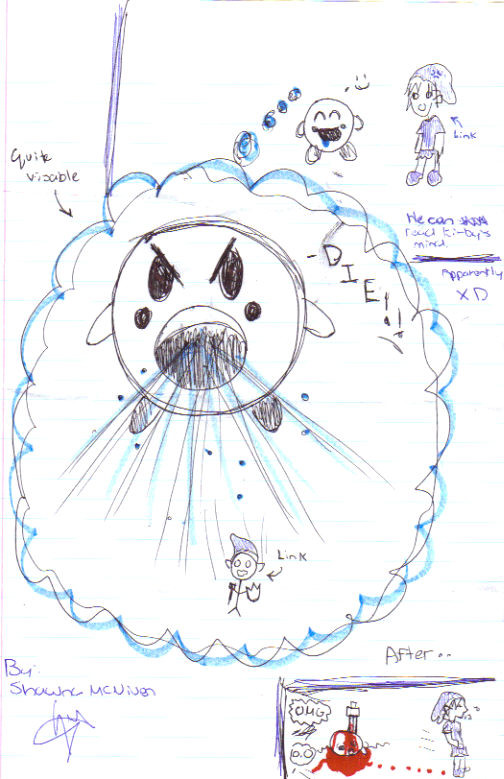 Quite
visable
Link
He can
read Kirby's
mind.
Apparently
XD
- D
I
E!!
Link
After..
By:
Shawna McNiven
OMG
O.O